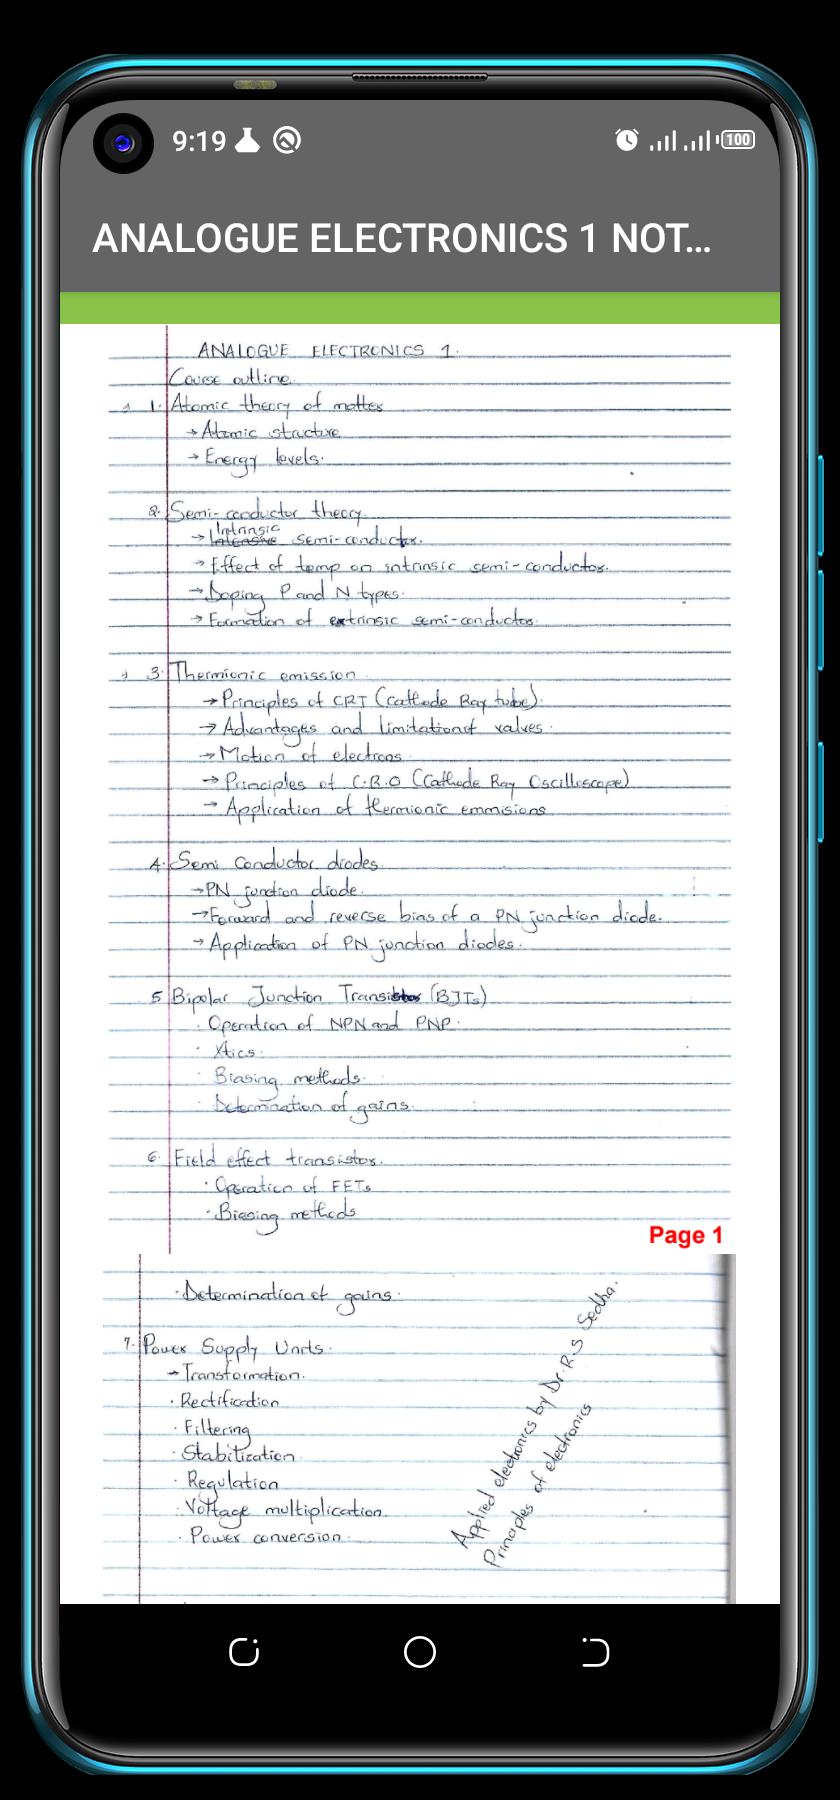 9:19
100
ANALOGUE ELECTRONICS 1 NOT...
ANALOGUE ELECTRONICS 1.
Course outline.
1. Atomic theory of matter
→ Atomic structure
→ Energy levels.
2. Semi-conductor theory.
Intrinsic
→ Intensive semi-conductor.
→ Effect of temp on intrinsic semi-conductor.
→ Doping P and N types.
→ Formation of extrinsic semi-conductor.
3. Thermionic emission.
→ Principles of CRT (Cathode Ray tube).
→ Advantages and limitation of valves.
→ Motion of electrons.
→ Principles of C.R.O (Cathode Ray Oscilloscope)
→ Application of thermionic emmisions
4. Semi Conductor diodes.
→ PN junction diode.
→ Forward and reverse bias of a PN junction diode.
→ Application of PN junction diodes.
5 Bipolar Junction Transistor (BJTs)
· Operation of NPN and PNP.
· Xtics.
· Biasing methods.
· Determination of gains.
6. Field effect transistor.
· Operation of FETs
· Biasing methods
Page 1
· Determination of gains.
7. Power Supply Units.
→ Transformation.
· Rectification
· Filtering
· Stabilization.
· Regulation
· Voltage multiplication.
· Power conversion.
Applied electronics by Dr. R.S Sedha.
Principles of electronics